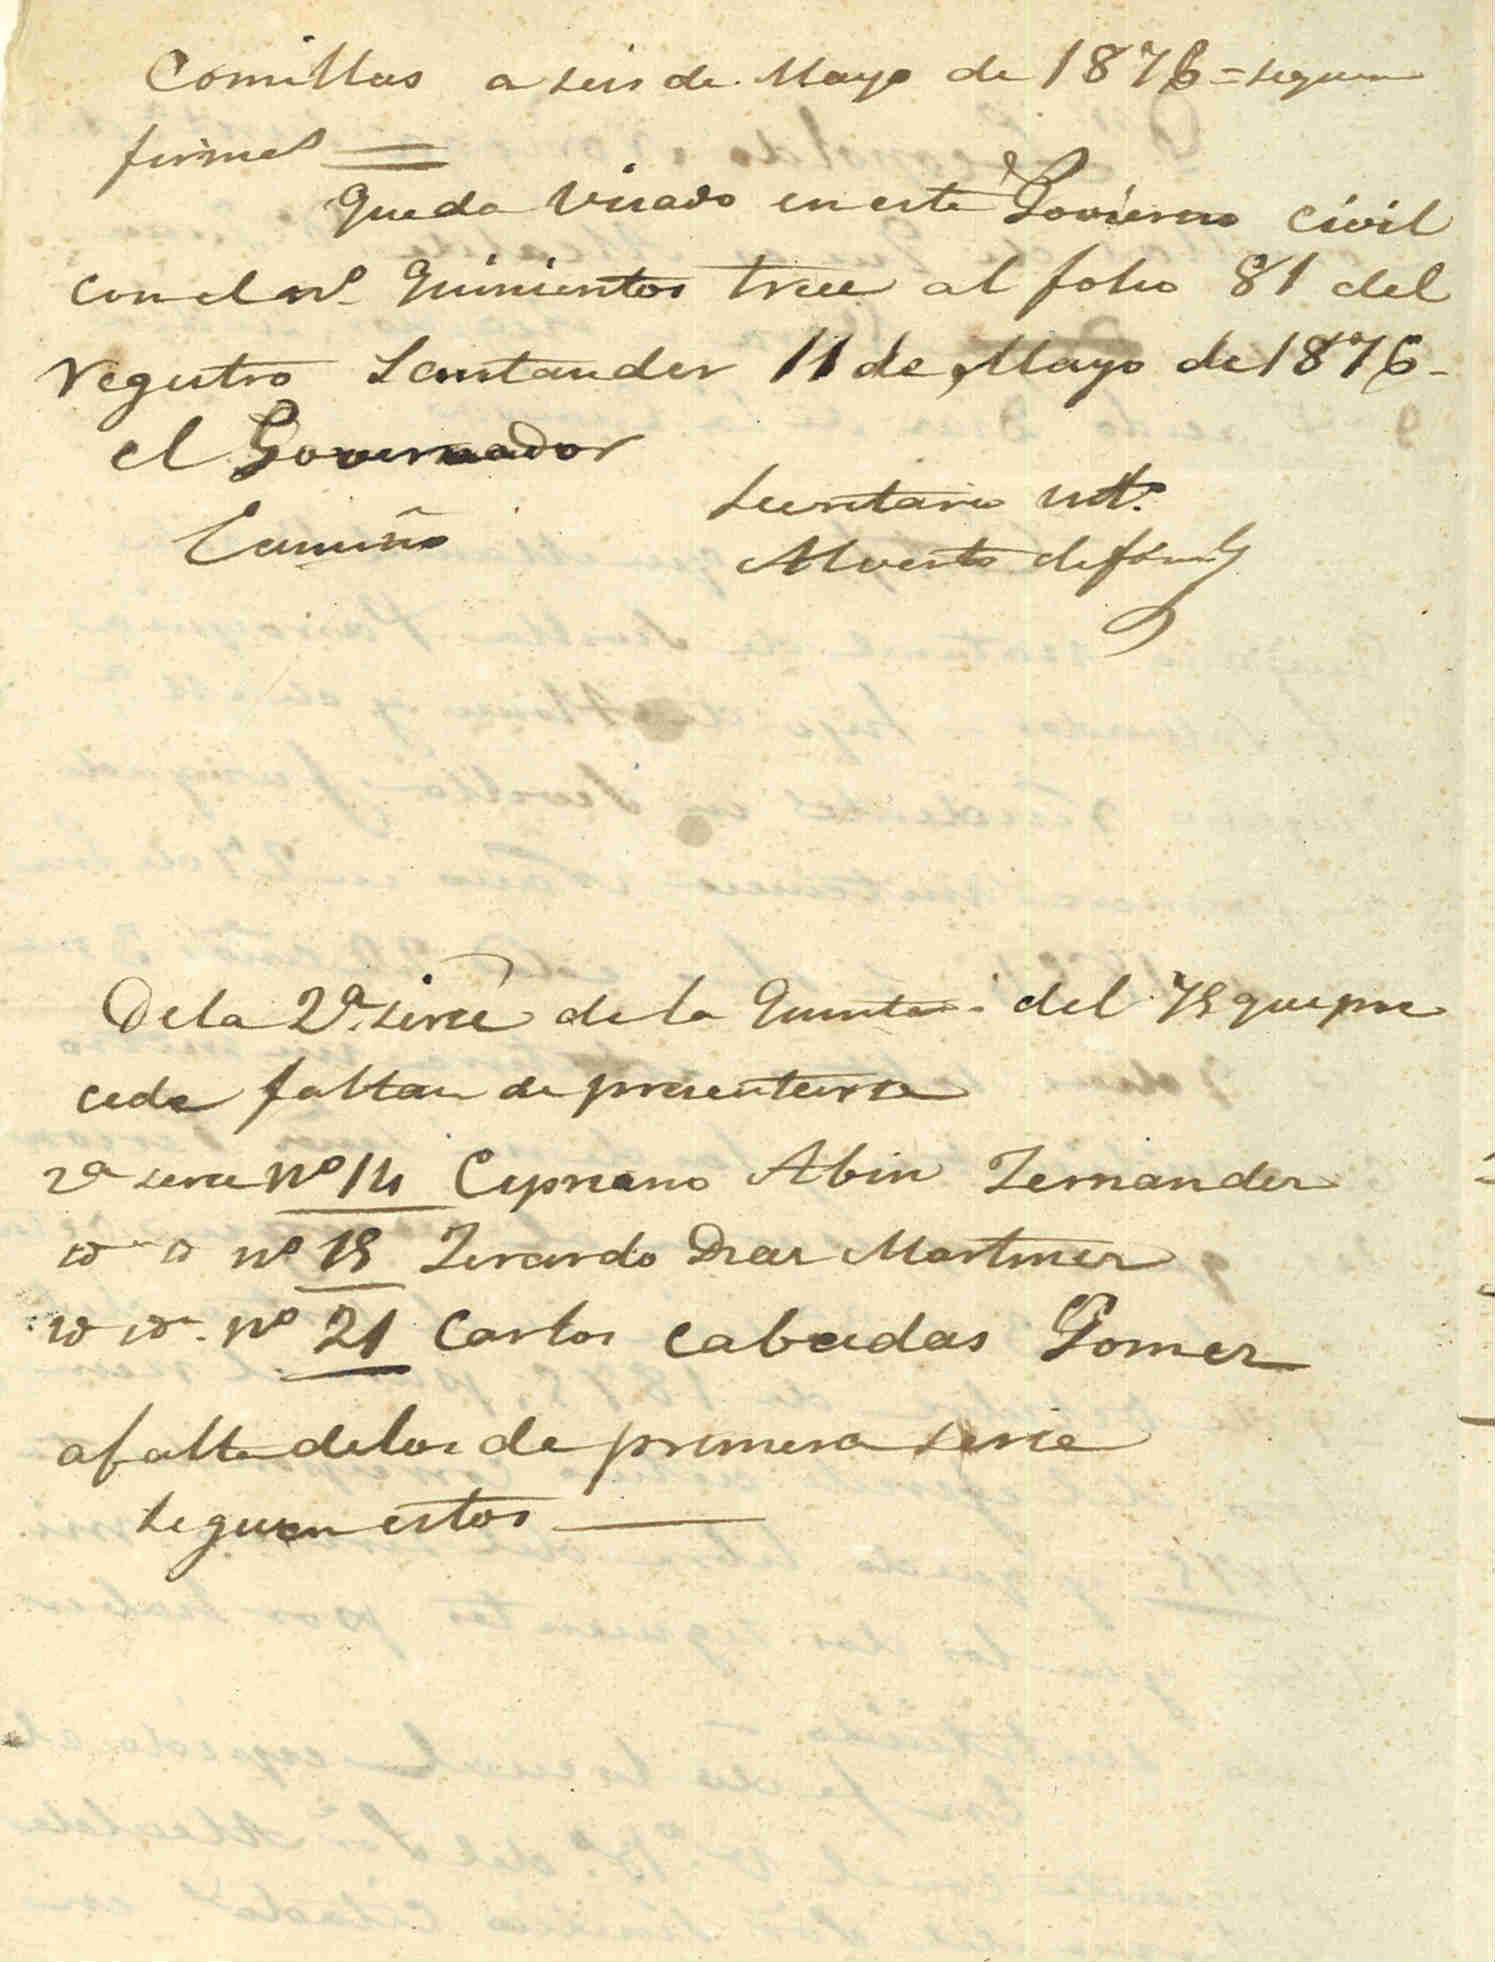 Comillas a seis de Mayo de 1876 = seguen
firmas =
Queda Visado en este Govierno civil
con el nº quinientos trece al folio 81 del
registro Santander 11 de Mayo de 1876 -
el Governador
Camiño
Secretario intº
Alverto de
De la 2ª serie de la Quinta del 75 que pre
cede faltan de presentarse
2ª serie nº 14 Cipriano Abin Fernander
id id nº 15 Gerardo Diar Martiner
id id nº 21 Carlos Cabeidas Gomez
a falta de los de primera serie
seguen estos